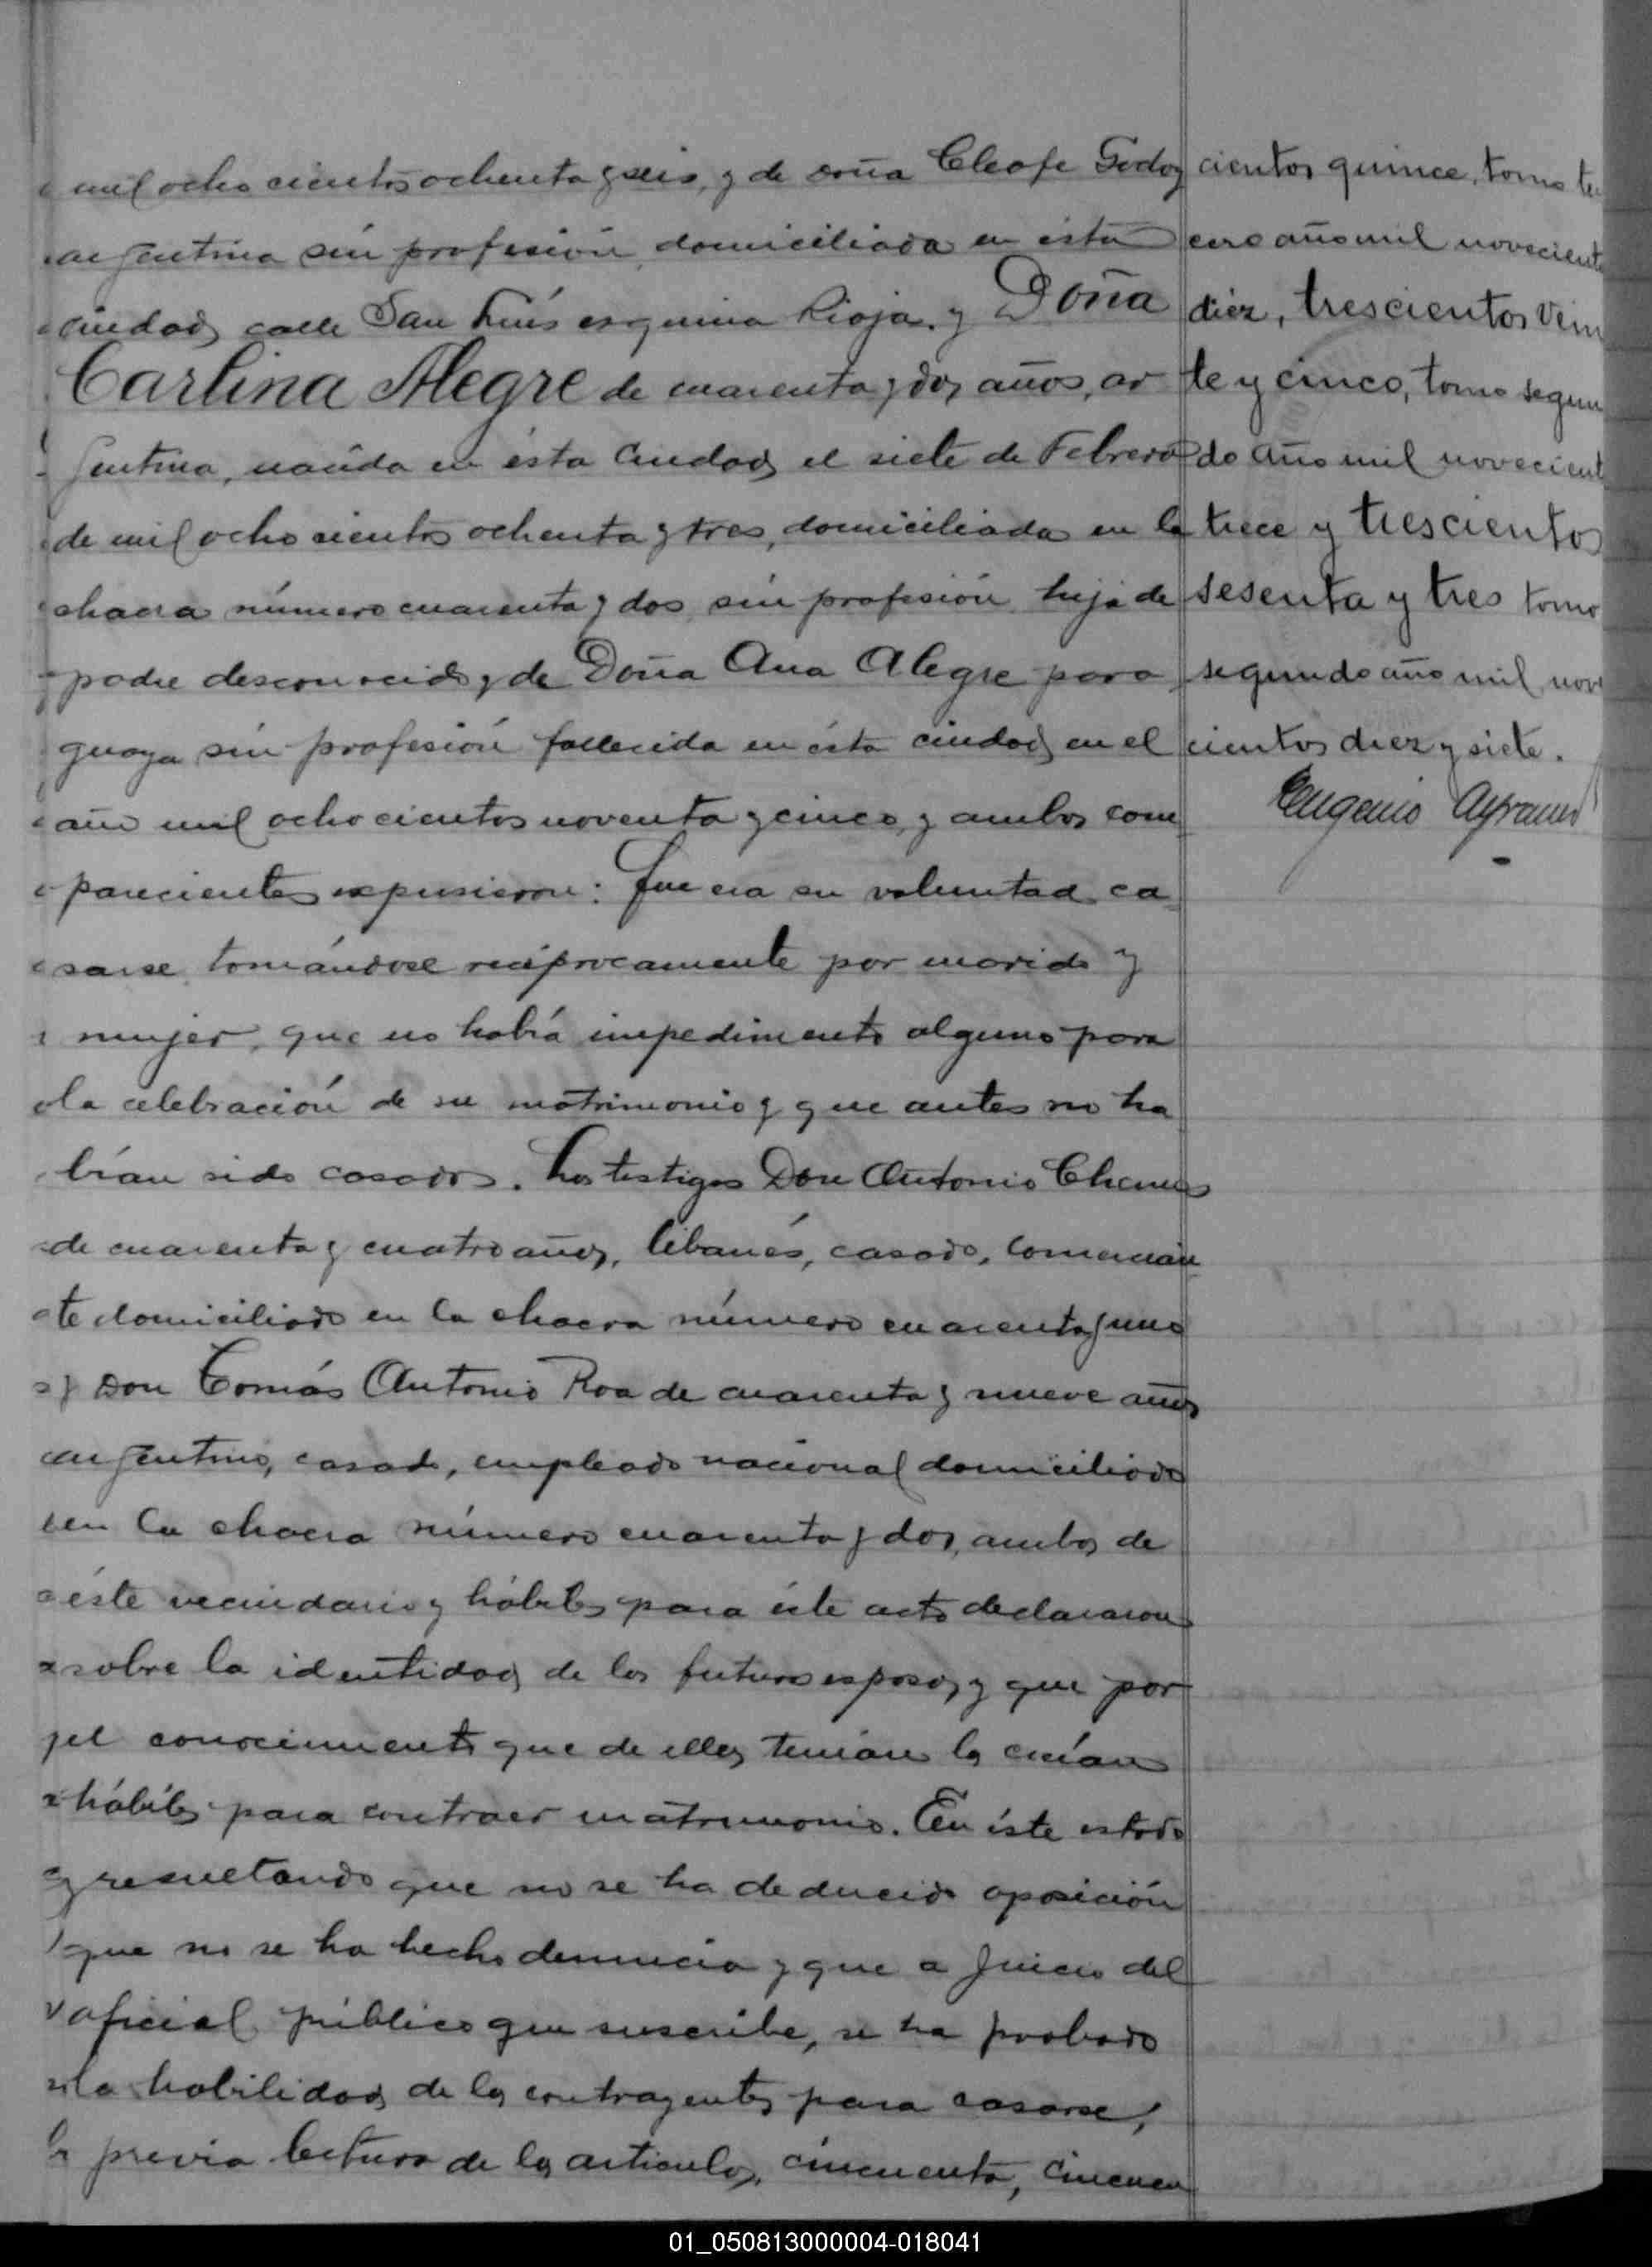 mil ocho cientos ochenta y seis, y de doña Cleofe Godoy
argentina sin profesión, domiciliada en ésta
ciudad, calle San Luís esquina Rioja, y Doña
Carlina Alegre de cuarenta y dos años, ar
gentina, nacida en ésta ciudad, el siete de Febrero
de mil ocho cientos ochenta y tres, domiciliada en la
chacra número cuarenta y dos, sin profesión, hija de
padre desconocido y de Doña Ana Alegre para
guaya sin profesión fallecida en ésta ciudad, en el
año mil ochocientos noventa y cinco, y ambos com
parecientes expusieron: Que era su voluntad ca
sarse, tomándose recíprocamente por marido y
mujer, que no había impedimento alguno para
la celebración de su matrimonio y que antes no ha
bían sido casados. Los testigos Don Antonio
de cuarenta y cuatro años, libanés, casado, comercian
te domiciliado en la chacra número cuarenta y uno
y Don Tomás Antonio Roa de cuarenta y nueve años
argentino, casado, empleado nacional domiciliado
en la chacra número cuarenta y dos, ambos de
éste vecindario y hábiles para éste acto declararon
sobre la identidad de los futuros esposos, y que por
el conocimiento que de ellos tenían los creían
hábiles para contraer matrimonio. En éste estado
y resultando que no se ha deducido oposición
que no se ha hecho denuncia y que a juicio del
oficial público que suscribe, se ha probado
la habilidad de los contrayentes para casarse,
previa lectura de los articulos, cincuenta, cincuen
cientos quince, tomo ter
cero año mil novecientos
diez, trescientos vein
te y cinco, tomo segun
do año mil novecient
trece y trescientos
sesenta y tres tomo
segundo año mil nove
cientos diez y siete.
Eugenio
01_050813000004-018041